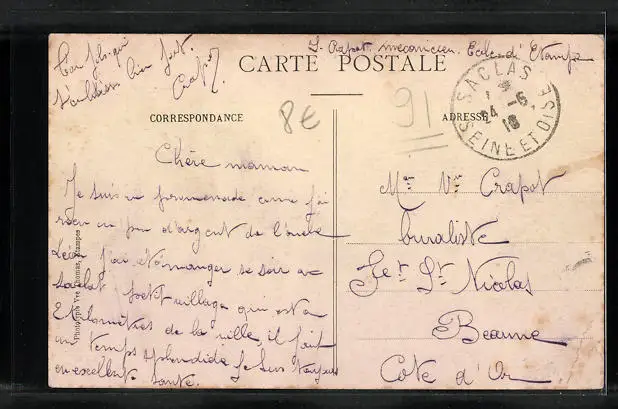 Ton fils qui
t'embrasse bien fort
Crapot
J. Crapot. mecanicien. Ecole d' Etampes
CARTE POSTALE
SACLAS
24 -6 18
SEINE ET OISE
CORRESPONDANCE
8€
91
ADRESSE
Chère maman
Je suis en promenade comme j'ai
reçu un peu d'argent de l'oncle
Léon j'ai été manger se soir a
Saclas petit village qui est a
kilomètres de la ville, il fait
un temps splendide je suis toujours
en excellente santé.
Mme Vve Crapot
buraliste
St Nicolas
Beaune
Cote d'Or
Etampes